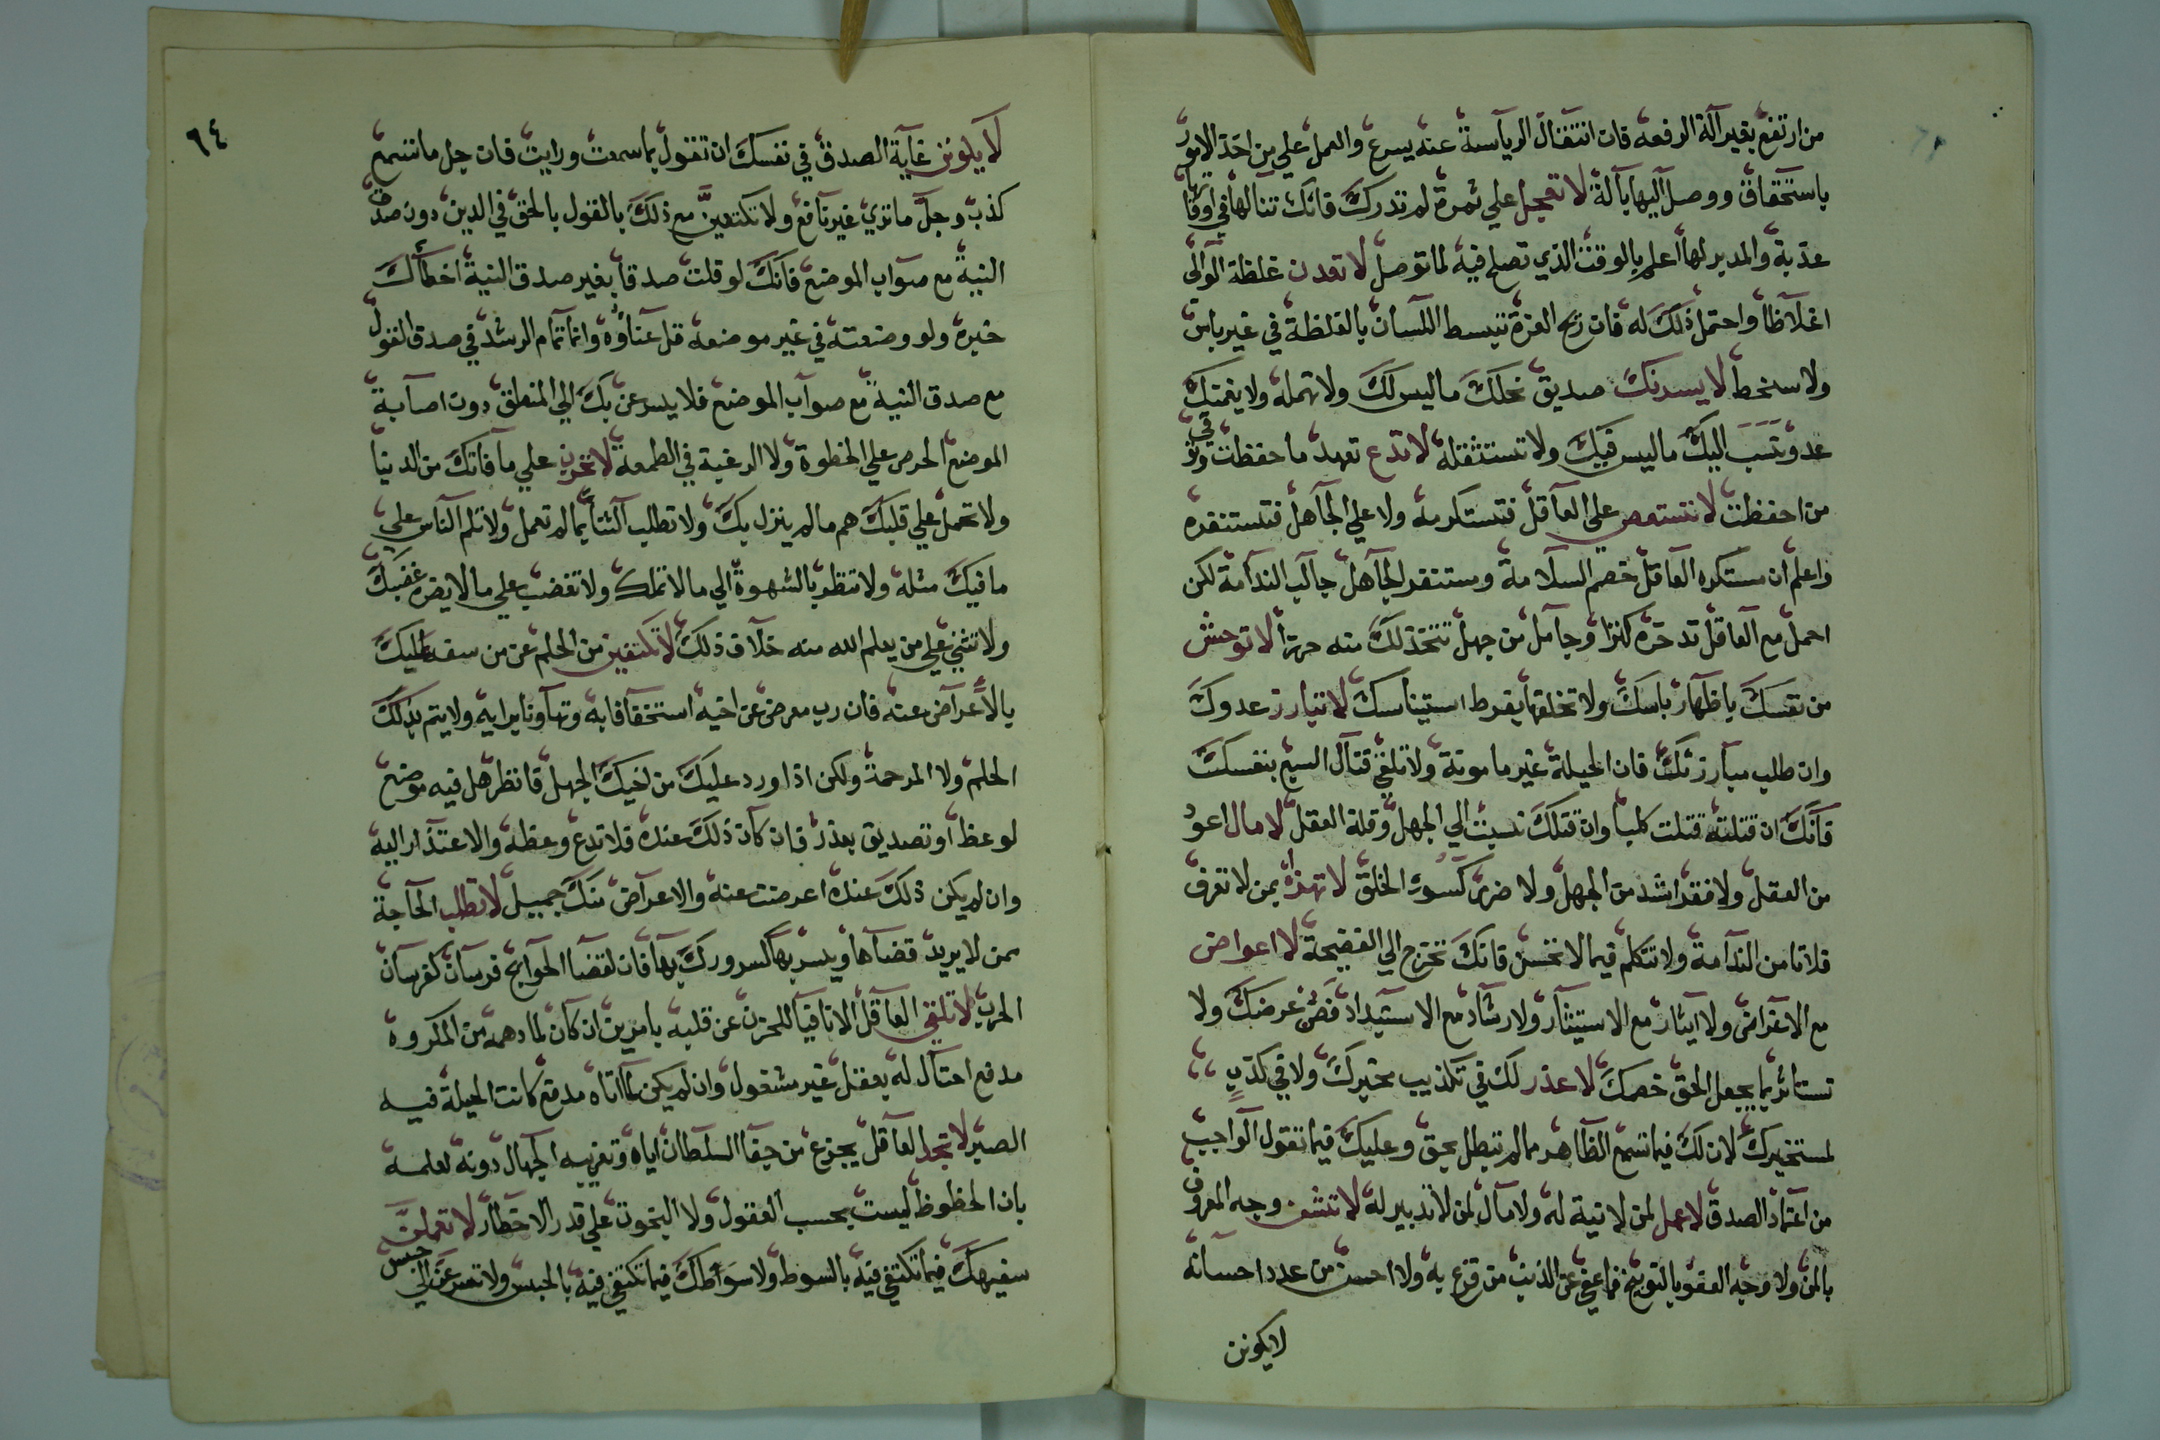 من ارتفع بغير آلة الرفعة فان انتقال الرياسة عنه يسرع والعمل علي من اخذ الامور
باستحقاق ووصل اليها بآلة لا تعجل علي ثمرة لم تدرك فانك تنالها في اوقاتها
عذبة والمدبر لها اعلم بالوقت الذي تصلح فيه لما توصل لا تعدن غلظة الوالي
اغلاظا واحتمل ذلك له فان ريح العزة تبسط اللسان بالغلظة في غير باس
ولا سخط لا يسرنك صديق نحلك ما ليس لك ولا تمله ولا يغمنك
عدو نسب اليك ما ليس فيك ولا تستثقله لا تدع تعهد ما حفظت وتوقي
من احفظت لا تستعص علي العاقل فتستكرهه ولا علي الجاهل فتستنفره
واعلم ان مستكره العاقل خصم السلامة ومستنفر الجاهل جالب الندامة لكن
احمل مع العاقل تدخره كنزا وجامل من جهل تتخذ لك منه حرزا لا توحش
من نفسك باظهار باسك ولا تخلقها بفرط استيناسك لا تبارز عدوك
وان طلب مبارزتك فان الحيلة غير مامونة ولا تلغي قتال السبع بنفسك
فانك ان قتلته قتلت كلبا وان قتلك نسبت الي الجهل وقلة العقل لا مال اعود
من العقل ولا فقر اشد من الجهل ولا ضر كسوء الخلق لا تهذه بمن لا تعرف
فلاتامن الندامة ولا تتكلم فيما لا تحسن فانك تخرج الي الفضيحة لا اعواض
مع الانقراض ولا ايثار مع الاستيثار ولا رشاد مع الاستبداد فض غرضك ولا
تستاثر بما يجعل الحق خصمك لا عذر لك في تكذيب مخبرك ولا في كذب
لمستخبرك لان لك فيما تسمع الظاهر ما لم تبطل بحق وعليك فيما تقول الواجب
من اعتماد الصدق لا عمل لمن لا نية له ولا مال لمن لا تدبير له لا تشن وجه المعروف
بالمن ولا وجه العفو بالتوبيخ فما عفي عن الذنب من قرع به ولا احسن من عدد احسانه
لايكونن
٩٤
لا يكونن غاية الصدق في نفسك ان تقول بما سمعت ورايت فان جل ما تسمع
كذب وجل ما تري غير نافع ولا تكتفين مع ذلك بالقول بالحق في الدين دون صدق
النية مع صواب الموضع فانك لو قلت صدقا بغير صدق النية اخطأك
خيره ولو وضعته في غير موضعه قل عناؤه وانما تمام الرشد في صدق القول
مع صدق النية مع صواب الموضع فلا يسرعن بك الي المنطق دون اصابة
الموضع الحرص علي الحظوة ولا الرغبة في الطمعة لا تحزن علي ما فاتك من الدنيا
ولا تحمل علي قلبك هم ما لم ينزل بك ولا تطلب الثنا بما لم تعمل ولا تلم الناس علي
ما فيك مثله ولا تنظر بالشهوة الي ما لا تملك ولا تغضب علي ما لا يضره غضبك
ولا تثني علي من يعلم الله منه خلاف ذلك لا تكتفين من الحلم عن من سفه عليك
بالأعراض عنه فان رب معرض عن اخيه استخفافا به وتهاونا برايه ولا يتم بذلك
الحلم ولا المرحمة ولكن اذا ورد عليك من اخيك الجهل فانظر هل فيه موضع
لوعظ او تصديق بعذر فان كان ذلك عنده فلا تدع وعظه والاعتذار اليه
وان لم يكن ذلك عنده اعرضت عنه والاعراض منك جميل لا تطلب الحاجة
ممن لا يريد قضاها ويسر بها كسرورك بها فان لقضا الحوايج فرسان كفرسان
الحرب لا تلقي العاقل الا نافيا للحزن عن قلبه بامرين ان كان لما دهمه من المكروه
مدفع احتال له بعقل غير مشغول وان لم يكن لما اتاه مدفع كانت الحيلة فيه
الصبر لا تجد العاقل يجزع من جفا السلطان اياه وتقريبه الجهال دونه لعلمه
بان الحظوظ ليست بحسب العقول ولا البخوت علي قدر الاخطار لا تعملن
سفيهك فيما تكتفي فيه بالسوط ولا سواطك فيما تكتفي فيه بالحبس ولا تسرعن الي حبس